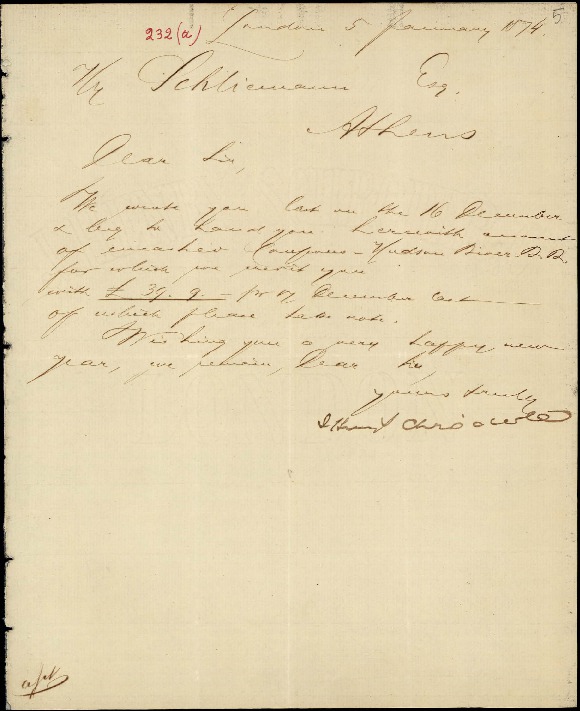 232(a) London 5 January 1874. 5
Hy Schliemann Esq.
Athens
Dear Sir,
We wrote you last on the 16 December
& beg to hand you herewith account
of encashed Coupons - Hudson River R.R.
for which we credit you
with £ 39. 9. - pr 17 December last
of which please take note.
Wishing you a very happy new
year, we remain, Dear Sir
yours truly